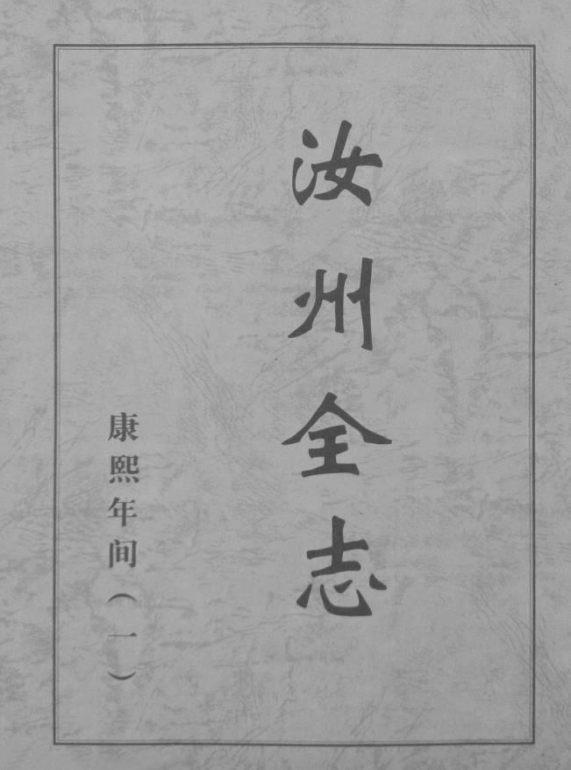 汝州全志
康熙年间（一）